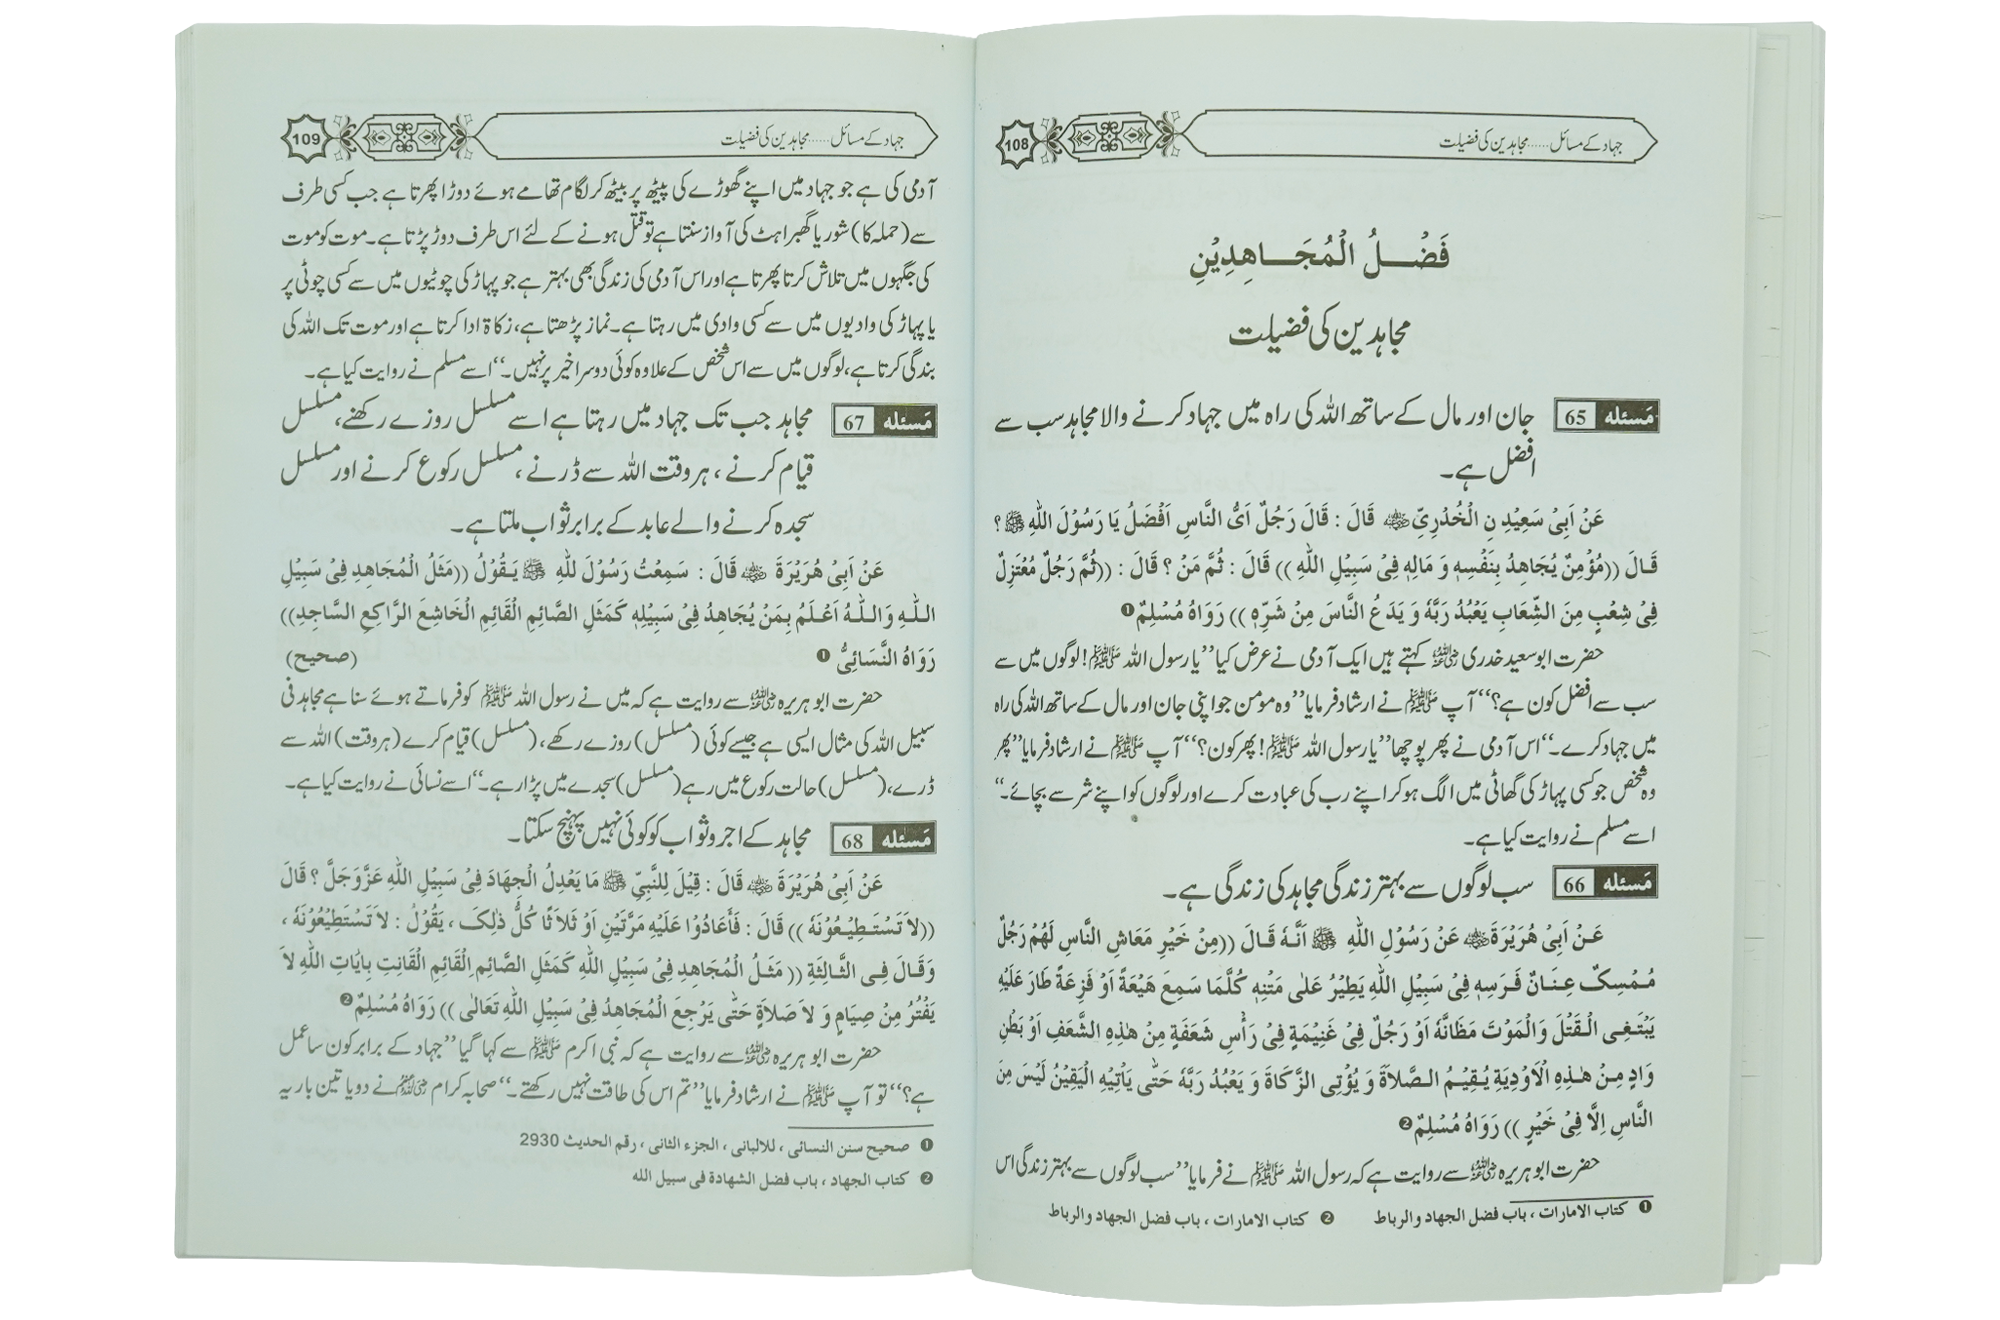 جہاد کے مسائل......مجاہدین کی فضیلت
108
فَضْلُ الْمُجَاهِدِيْنِ
مجاہدین کی فضیلت
مَسئله 65 جان اور مال کے ساتھ اللہ کی راہ میں جہاد کرنے والا مجاہد سب سے
افضل ہے۔
عَنْ اَبِیْ سَعِيْدِ نِ الْخُدْرِیِّ ﷺ قَالَ : قَالَ رَجُلٌ اَیُّ النَّاسِ اَفْضَلُ يَا رَسُوْلَ اللّٰهِ ﷺ ؟
قَالَ ((مُؤْمِنٌ يُجَاهِدُ بِنَفْسِهٖ وَ مَالِهٖ فِیْ سَبِيْلِ اللّٰهِ )) قَالَ : ثُمَّ مَنْ ؟ قَالَ : ((ثُمَّ رَجُلٌ مُعْتَزِلٌ
فِیْ شِعْبٍ مِنَ الشِّعَابِ يَعْبُدُ رَبَّهٗ وَ يَدَعُ النَّاسَ مِنْ شَرِّهٖ )) رَوَاهُ مُسْلِمٌ ❶
حضرت ابوسعید خدری رضی اللہ عنہ کہتے ہیں ایک آدمی نے عرض کیا ”یا رسول اللہ ﷺ! لوگوں میں سے
سب سے افضل کون ہے؟“ آپ ﷺ نے ارشاد فرمایا ”وہ مومن جو اپنی جان اور مال کے ساتھ اللہ کی راہ
میں جہاد کرے۔“ اس آدمی نے پھر پوچھا ”یا رسول اللہ ﷺ! پھر کون؟“ آپ ﷺ نے ارشاد فرمایا ”پھر
وہ شخص جو کسی پہاڑ کی گھاٹی میں الگ ہو کر اپنے رب کی عبادت کرے اور لوگوں کو اپنے شر سے بچائے۔“
اسے مسلم نے روایت کیا ہے۔
مَسئله 66 سب لوگوں سے بہتر زندگی مجاہد کی زندگی ہے۔
عَنْ اَبِیْ هُرَيْرَةَ رضی اللہ عنہ عَنْ رَسُوْلِ اللّٰهِ ﷺ اَنَّهٗ قَالَ ((مِنْ خَيْرِ مَعَاشِ النَّاسِ لَهُمْ رَجُلٌ
مُمْسِکٌ عِنَانٌ فَرَسِهٖ فِیْ سَبِيْلِ اللّٰهِ يَطِيْرُ عَلٰی مَتْنِهٖ کُلَّمَا سَمِعَ هَيْعَةً اَوْ فَزِعَةً طَارَ عَلَيْهِ
يَبْتَغِی الْقَتْلَ وَالْمَوْتَ مَظَانَّهٗ اَوْ رَجُلٌ فِیْ غَنِيْمَةٍ فِیْ رَأْسِ شَعَفَةٍ مِنْ هٰذِهِ الشَّعَفِ اَوْ بَطْنِ
وَادٍ مِنْ هٰذِهِ الْاَوْدِيَةِ يُقِيْمُ الصَّلاَةَ وَ يُؤْتِی الزَّکَاةَ وَ يَعْبُدُ رَبَّهٗ حَتّٰی يَأْتِيْهِ الْيَقِيْنُ لَيْسَ مِنَ
النَّاسِ اِلَّا فِیْ خَيْرٍ )) رَوَاهُ مُسْلِمٌ ❷
حضرت ابو ہریرہ رضی اللہ عنہ سے روایت ہے کہ رسول اللہ ﷺ نے فرمایا ”سب لوگوں سے بہتر زندگی اس
❶ کتاب الامارات ، باب فضل الجهاد والرباط ❷ کتاب الامارات ، باب فضل الجهاد والرباط
جہاد کے مسائل......مجاہدین کی فضیلت
109
آدمی کی ہے جو جہاد میں اپنے گھوڑے کی پیٹھ پر بیٹھ کر لگام تھامے ہوئے دوڑا پھرتا ہے جب کسی طرف
سے (حملہ کا) شور یا گھبراہٹ کی آواز سنتا ہے تو قتل ہونے کے لئے اس طرف دوڑ پڑتا ہے۔ موت کو موت
کی جگہوں میں تلاش کرتا پھرتا ہے اور اس آدمی کی زندگی بھی بہتر ہے جو پہاڑ کی چوٹیوں میں سے کسی چوٹی پر
یا پہاڑ کی وادیوں میں سے کسی وادی میں رہتا ہے۔ نماز پڑھتا ہے، زکاۃ ادا کرتا ہے اور موت تک اللہ کی
بندگی کرتا ہے، لوگوں میں سے اس شخص کے علاوہ کوئی دوسرا خیر پر نہیں۔“ اسے مسلم نے روایت کیا ہے۔
مَسئله 67 مجاہد جب تک جہاد میں رہتا ہے اسے مسلسل روزے رکھنے، مسلسل
قیام کرنے ، ہر وقت اللہ سے ڈرنے ، مسلسل رکوع کرنے اور مسلسل
سجدہ کرنے والے عابد کے برابر ثواب ملتا ہے۔
عَنْ اَبِیْ هُرَيْرَةَ رضی اللہ عنہ قَالَ : سَمِعْتُ رَسُوْلَ للهِ ﷺ يَقُوْلُ ((مَثَلُ الْمُجَاهِدِ فِیْ سَبِيْلِ
اللّٰهِ وَاللّٰهُ اَعْلَمُ بِمَنْ يُجَاهِدُ فِیْ سَبِيْلِهٖ کَمَثَلِ الصَّائِمِ الْقَائِمِ الْخَاشِعَ الرَّاکِعِ السَّاجِدِ))
رَوَاهُ النَّسَائِیُّ ❶ (صحیح)
حضرت ابو ہریرہ رضی اللہ عنہ سے روایت ہے کہ میں نے رسول اللہ ﷺ کو فرماتے ہوئے سنا ہے مجاہد فی
سبیل اللہ کی مثال ایسی ہے جیسے کوئی (مسلسل) روزے رکھے ، (مسلسل) قیام کرے (ہر وقت) اللہ سے
ڈرے، (مسلسل) حالت رکوع میں رہے (مسلسل) سجدے میں پڑا رہے۔“ اسے نسائی نے روایت کیا ہے۔
مَسئله 68 مجاہد کے اجر و ثواب کو کوئی نہیں پہنچ سکتا۔
عَنْ اَبِیْ هُرَيْرَةَ رضی اللہ عنہ قَالَ : قِيْلَ لِلنَّبِیِّ ﷺ مَا يَعْدِلُ الْجِهَادَ فِیْ سَبِيْلِ اللّٰهِ عَزَّوَجَلَّ ؟ قَالَ
((لاَ تَسْتَطِيْعُوْنَهٗ )) قَالَ : فَأَعَادُوْا عَلَيْهِ مَرَّتَيْنِ اَوْ ثَلاَ ثًا کُلُّ ذٰلِکَ ، يَقُوْلُ : لاَ تَسْتَطِيْعُوْنَهٗ ،
وَقَالَ فِی الثَّالِثَةِ (( مَثَلُ الْمُجَاهِدِ فِیْ سَبِيْلِ اللّٰهِ کَمَثَلِ الصَّائِمِ الْقَائِمِ الْقَانِتِ بِايَاتِ اللّٰهِ لاَ
يَفْتُرُ مِنْ صِيَامٍ وَ لاَ صَلاَةٍ حَتّٰی يَرْجِعَ الْمُجَاهِدُ فِیْ سَبِيْلِ اللّٰهِ تَعَالٰی )) رَوَاهُ مُسْلِمٌ ❷
حضرت ابو ہریرہ رضی اللہ عنہ سے روایت ہے کہ نبی اکرم ﷺ سے کہا گیا ”جہاد کے برابر کون سا عمل
ہے؟“ تو آپ ﷺ نے ارشاد فرمایا ”تم اس کی طاقت نہیں رکھتے۔“ صحابہ کرام رضی اللہ عنہم نے دو یا تین بار یہ
❶ صحیح سنن النسائی ، للالبانی ، الجزء الثانی ، رقم الحدیث 2930
❷ کتاب الجهاد ، باب فضل الشهادة فی سبیل الله